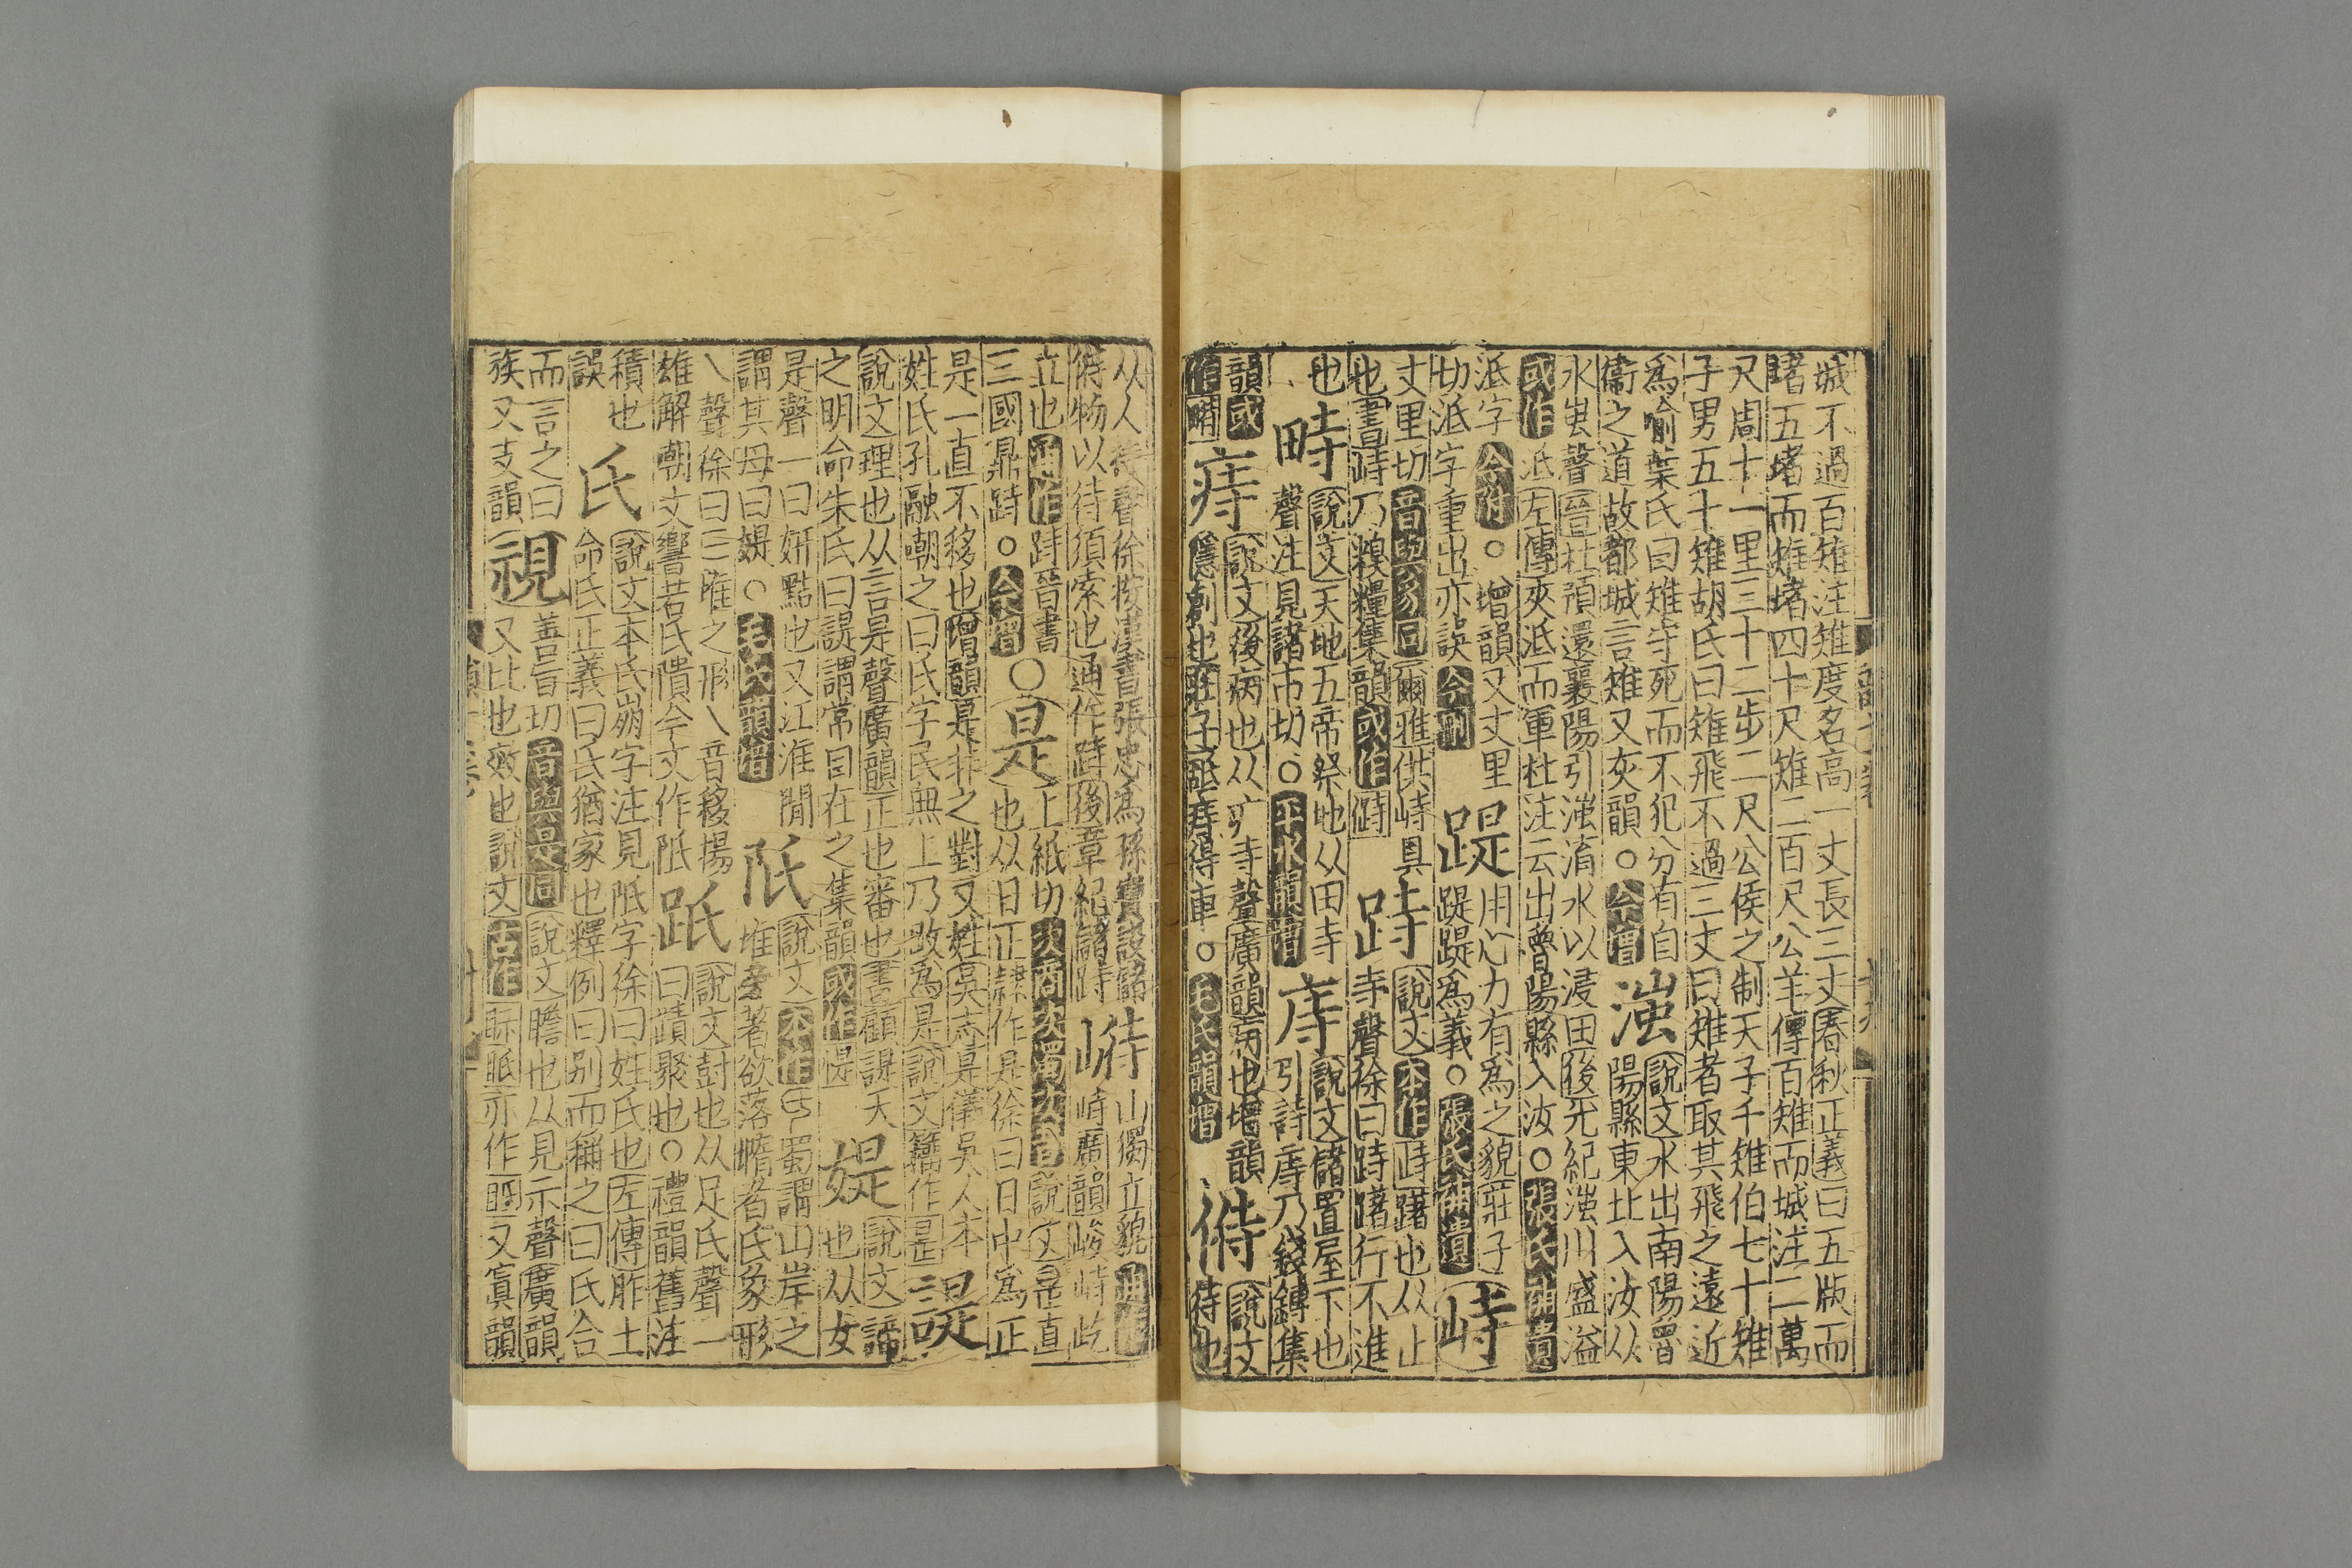 城不過百雉注雉度名高一丈長三丈春秋正義曰五版而
堵五堵而雉堵四十尺雉二百尺公羊傳百雉而城注二萬
尺周十一里三十二步二尺公侯之制天子千雉伯七十雉
子男五十雉胡氏曰雉飛不過三丈曰雉者取其飛之遠近
為喻葉氏曰雉守死而不犯分有自
衞之道故都城言雉又夾韻○今增
滍
說文水出南陽魯
陽縣東北入汝从
水蚩聲晉杜預還襄陽引滍淯水以浸田後光紀滍川盛溢
或作泜左傳夾泜而軍杜注云出魯陽縣入汝○張氏補遺
泜字今附○增韻又丈里
切泜字重出亦誤今刪
踶
用心力有為之貌莊子
踶踶為義○張氏補遺
峙
丈里切音與豸同爾雅供峙具
也書峙乃糗糧集韻或作偫
跱
說文本作峙躇也从止
寺聲徐曰跱躇行不進
也
畤
說文天地五帝祭地从田寺
聲注見諸市切○平水韻增
庤
說文儲置屋下也
引詩庤乃錢鎛集
韻或
作畤
痔
說文後病也从疒寺聲廣韻病也增韻
隱創也莊子舐痔得車○毛氏韻增
偫
說文
待也
从人待聲徐按漢書張忠為孫寶設儲
偫物以待須索也通作跱後章紀儲跱
峙
山獨立貌通作
峙廣韻峻峙屹
立也通作跱晉書
三國鼎跱○今增
○是
上紙切次商次濁次音說文昰直
也从日正隷作是徐曰日中為正
是一直不移也增韻是非之對又姓吳志是儀吳人本
姓氏孔融嘲之曰氏字民無上乃改為是說文籀作昰
諟
說文理也从言是聲廣韻正也審也書顧諟天
之明命朱氏曰諟謂常目在之集韻或作偍
媞
說文諦
也从女
是聲一曰妍黠也又江淮間
謂其母曰媞○毛氏韻增
阺
說文本作氏蜀謂山岸之
堆旁著欲落嶞者氏象形
乁聲徐曰三堆之形乁音移揚
雄解嘲文響若氏隤今文作阺
跂
說文䞈也从足氏聲一
曰蹟聚也○禮韻舊注
積也
誤
氏
說文本氏崩字注見阺字徐曰姓氏也左傳胙土
命氏正義曰氏猶家也釋例曰别而稱之曰氏合
而言之曰
族又支韻
視
善旨切音與是同說文瞻也从見示聲廣韻
又比也效也說文古作眎眡亦作眂又寘韻